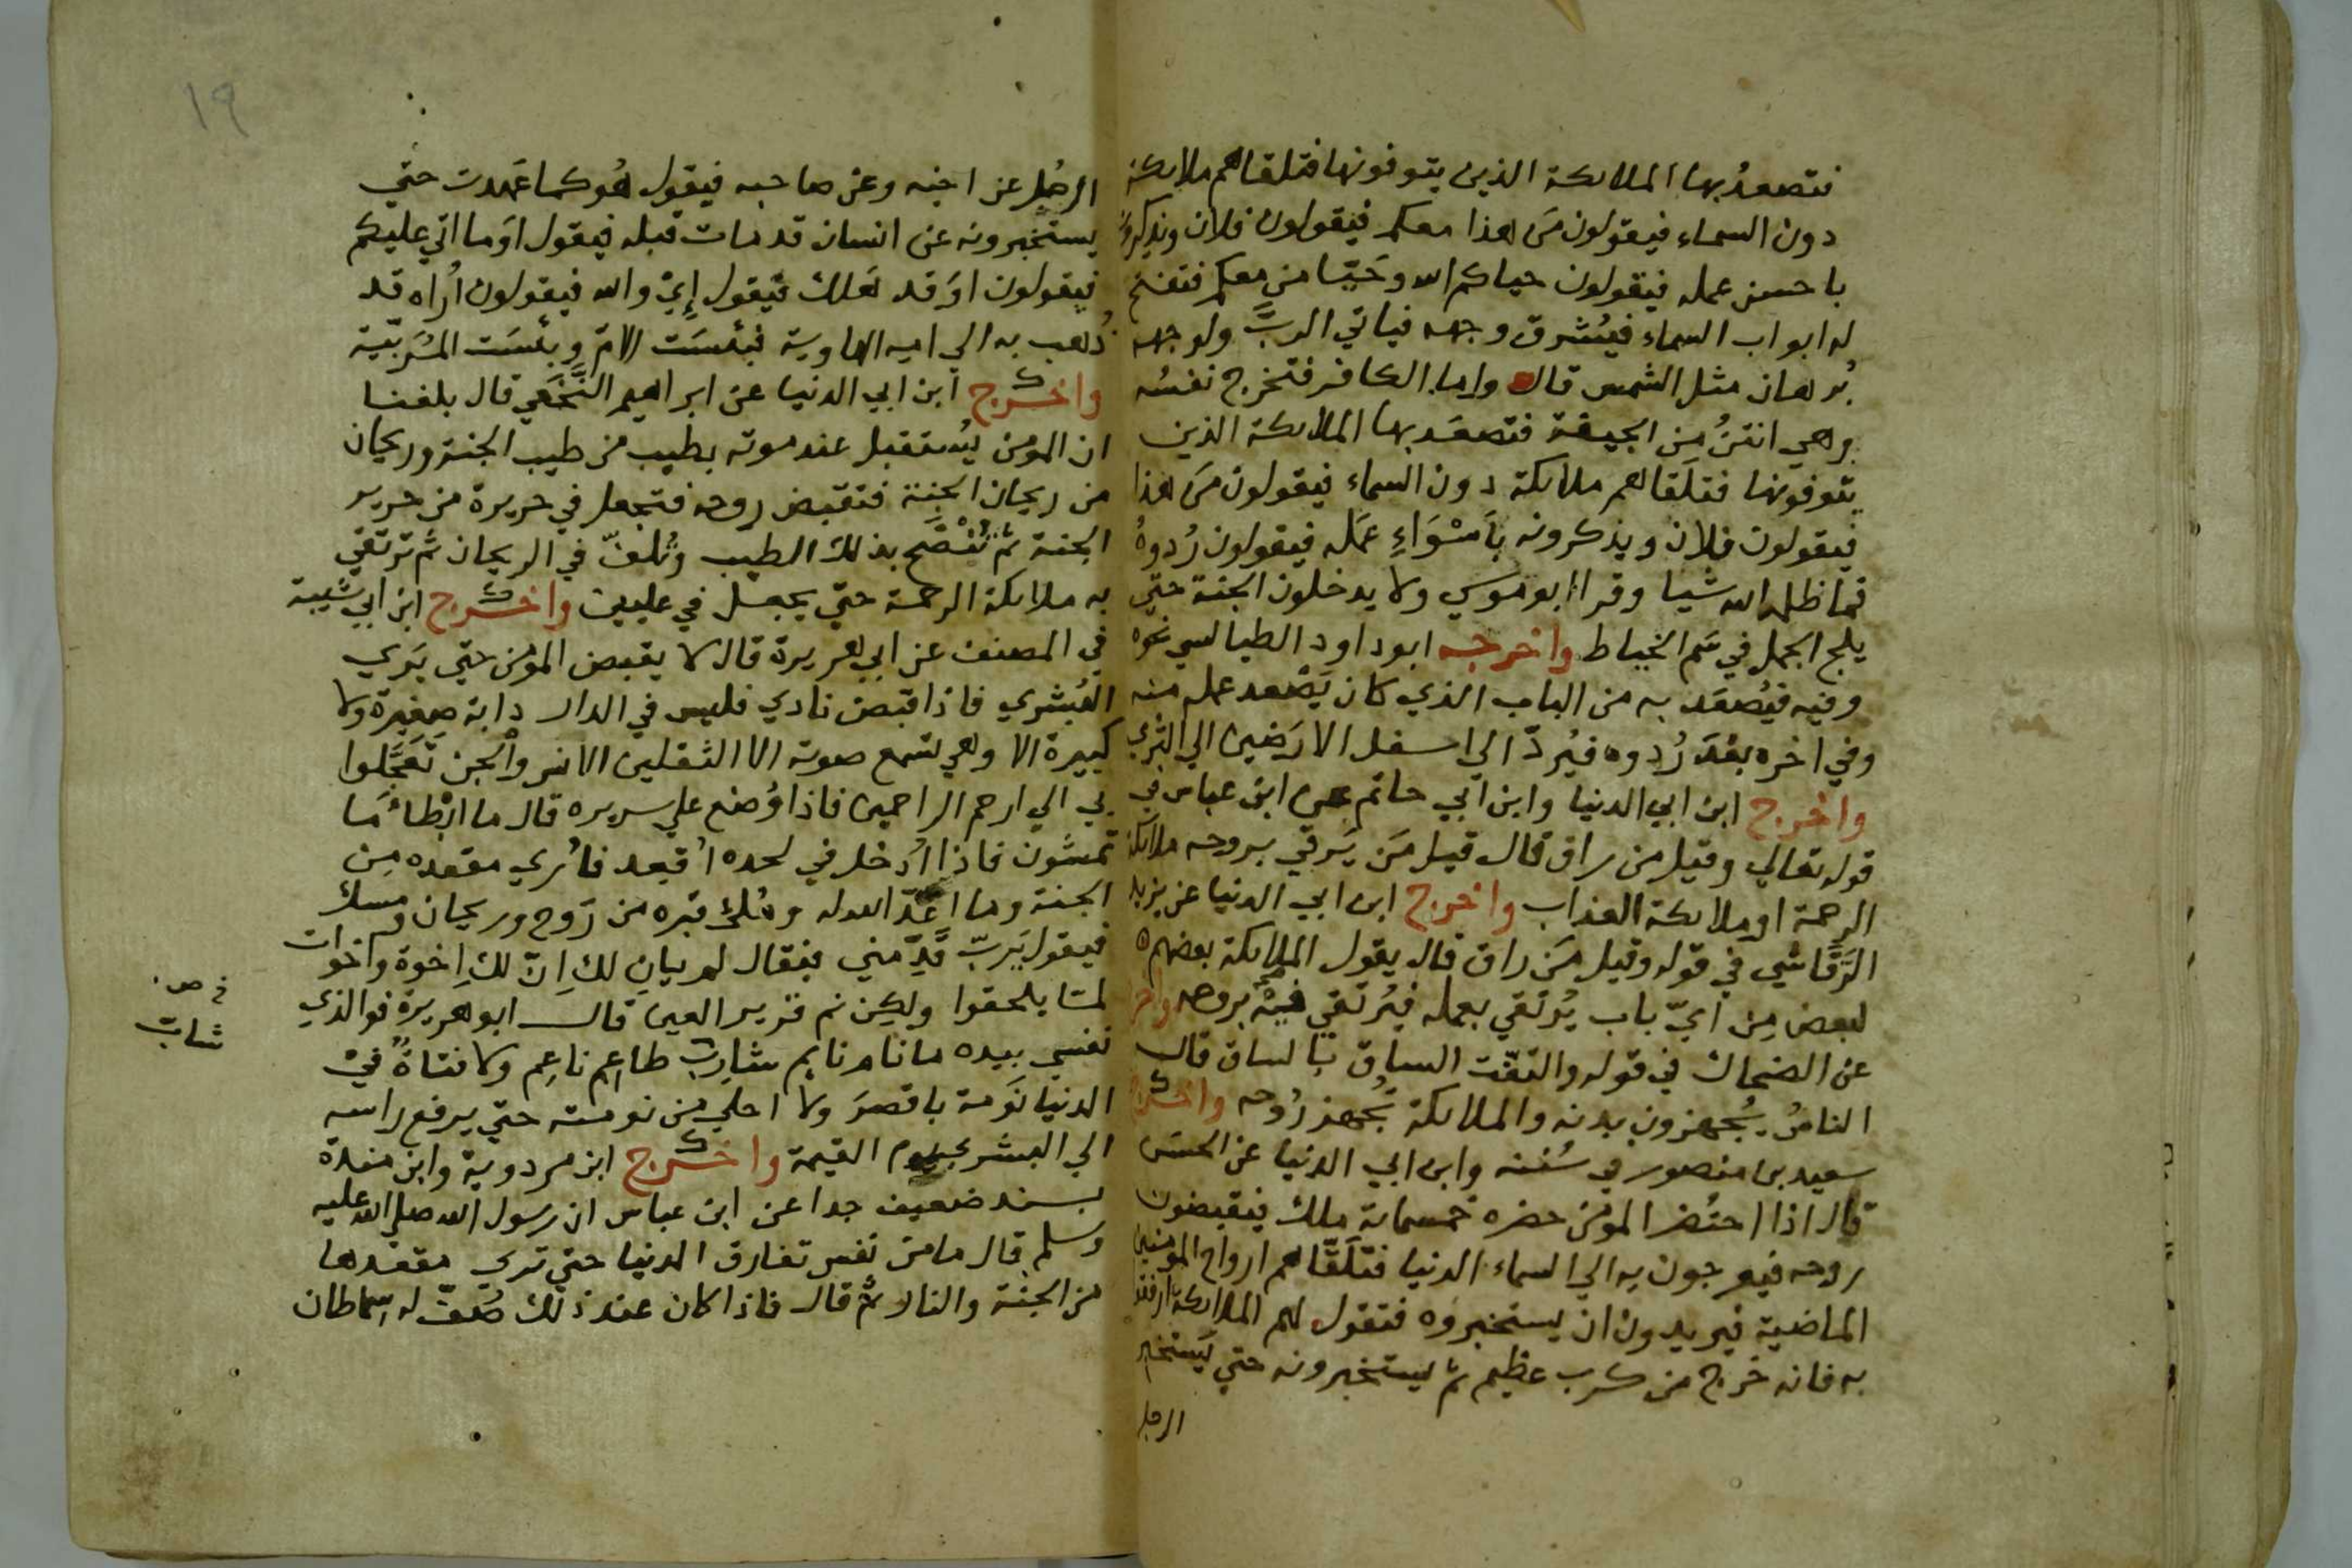 فتصعدُ بها الملائكة الذين يتوفونها فتلقاهم ملائكة
دون السماء فيقولون مَن هذا معكم فيقولون فلان ويذكرونه
باحسن عمله فيقولون حياكم الله وحَيّا من معكم فتفتح
له ابواب السماء فيُشرق وجهه فياتي الربَّ ولوجهه
بُرهان مثل الشمس قال واما الكافر فتخرج نفسُه
وهي انتنُ مِن الجيفة فتصعَد بها الملائكة الذين
يتوفونها فتلَقاهم ملائكة دون السماء فيقولون مَن هذا
فيقولون فلان ويذكرونه بأَسْوَاءِ عمَله فيقولون رُدوهُ
فما ظلمه الله شيا وقرا ابو موسي ولا يدخلون الجنة حتي
يلج الجمل في سَم الخياط واخرجه ابو داود الطيالسي نحوه
وفيه فيُصعَد به من الباب الذي كان يَصْعد عمله منه
وفي اخره بعْدَ رُدوه فيُردّ الي اسفل الارَضين الي الثري
واخرج ابن ابي الدنيا وابن ابي حاتم عن ابن عباس في
قوله تعالي وقيل من راق قال قيل مَن يَرقي بروحه ملائكة
الرحمة او ملائكة العذاب واخرج ابن ابي الدنيا عن يزيد
الرَّقَّاشي في قوله وقيل مَن راق قال يقول الملائكة بعضهم
لبعض مِن ايّ باب يُرتقي بعمله فيُرتقي فيه بروحه واخرج
عن الضحاك في قوله والتفّت الساق بالساق قال
الناسُ يُجهزون بدنه والملائكة تُجهز رُوحه واخرج
سعيد بن منصور في سُننه وابن ابي الدنيا عن الحسَن
قال اذا احتُضر المومن حضره خمسماية ملك فيقبضون
روحه فيعرجون به الي السماء الدنيا فتلَقَّاهم ارواح المومنين
الماضية فيريدون ان يستخبروه فتقول لهم الملائكة ارفقوا
به فانه خرج من كرب عظيم ثم يستخبرونه حتي يَستخبر
الرجل
١٩
الرجُل عن اخيه وعن صاحبه فيقول هُو كما عَهدت حتي
يستخبرونه عن انسان قد مات قبله فيقول اوَما اتي عليكم
فيقولون اوَقد هَلك فيقول إِيْ والله فيقولون أُراه قد
ذُهب به الي امه الهاوية فبئسَت الامّ وبئسَت المُرَبّية
واخرج ابن ابي الدنيا عن ابراهيم النَّخَعي قال بلغنا
ان المومن يُستقبل عند موته بطيب من طيب الجنة وريحان
من ريحان الجنة فتقبض روحه فتجعل في حريرة من حرير
الجنة ثم تُنْضَح بذلك الطيب وتُلفّ في الريحان ثم ترتقي
به ملائكة الرحمة حتي يجعل في عليين واخرج ابن ابي شيبة
في المصنف عن ابي هريرة قال لا يقبض المومن حتي يَري
البُشري فاذا قبض نادي فليس في الدار دابة صغيرة ولا
كبيرة الا وهي تسمع صوته الا الثقلين الانس والجن تَعَجَّلوا
بي الي ارحم الراحمين فاذا وُضع علي سريره قال ما ابْطأَ مَا
تمشون فاذا اُدخل في لحده اُقعد فاُري مقعده مِن
الجنة وما اعَدّ الله له ومُلئ قبره من رَوح وريحان ومسك
فيقول يَربّ قَدّمني فيقال لم يانِ لك اِنّ لك اِخوة واخوات
لمّا يلحقوا ولكِن نم قرير العين قال ابو هريرة فوالذي
نفسي بيده ما نام نايم شارب طاعم ناعِم ولا فتاةٌ في
الدنيا نَومة باقصرَ ولا احلي من نومته حتي يرفع راسه
الي البشر بيوم القيمة واخرج ابن مردوية وابن مندة
بسند ضعيف جدا عن ابن عباس ان رسول الله صلي الله عليه
وسلم قال ما من نفس تفارق الدنيا حتي تري مقعدها
من الجنة والنار ثم قال فاذا كان عند ذلك صُفّ له سماطان
شابّ